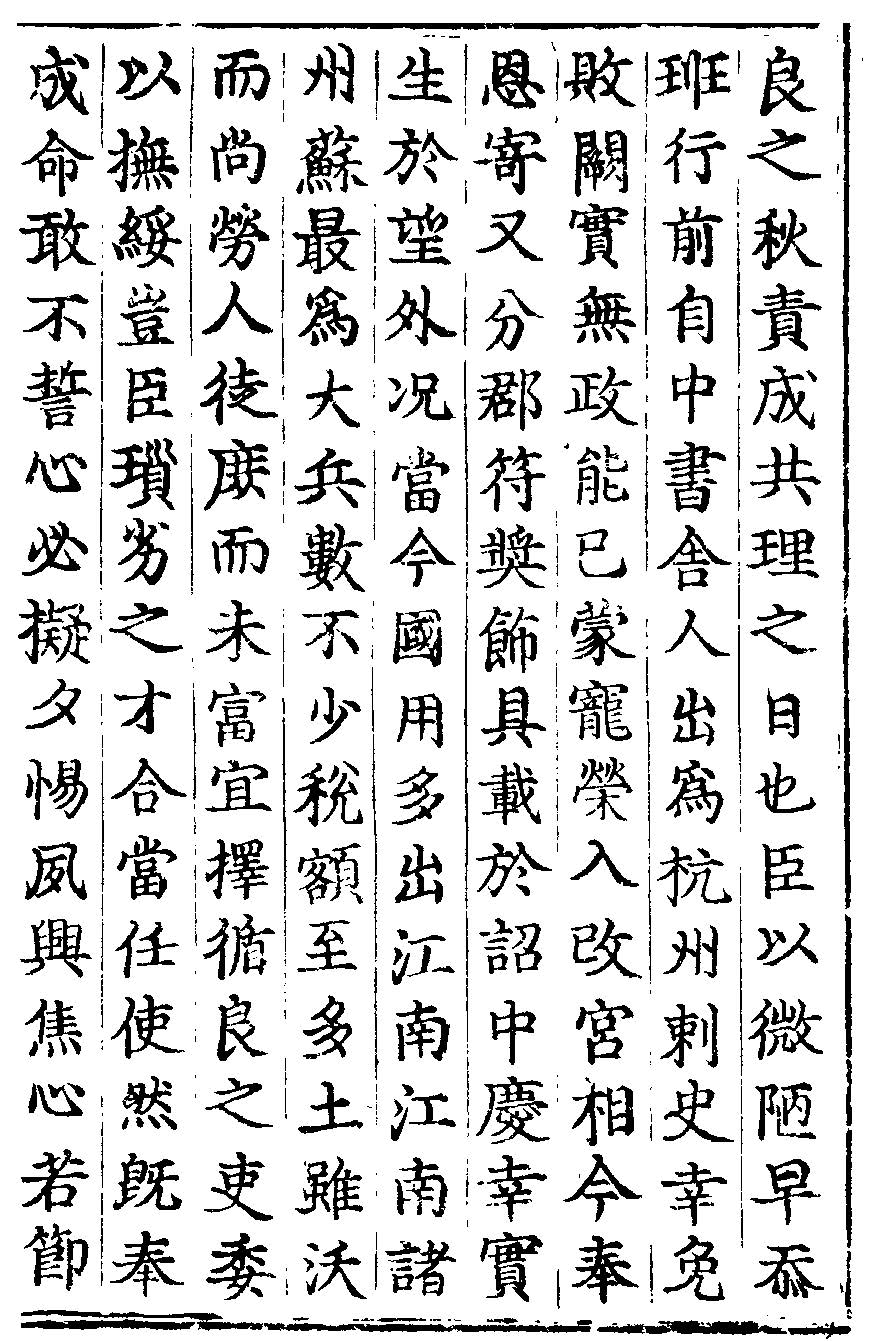 良之秋責成共理之日也臣以微陋早忝
班行前自中書舎人出爲杭州刺史幸免
敗闕實無政能已蒙寵榮入改宮相今奉
恩寄又分郡符奬飾具載於詔中慶幸實
生於望外况當今國用多出江南江南諸
州蘇最爲大兵數不少稅額至多土雖沃
而尚勞人徒庶而未富宜擇循良之吏委
以撫綏豈臣瑣劣之才合當任使然旣奉
成命敢不誓心必擬夕惕夙興焦心若節